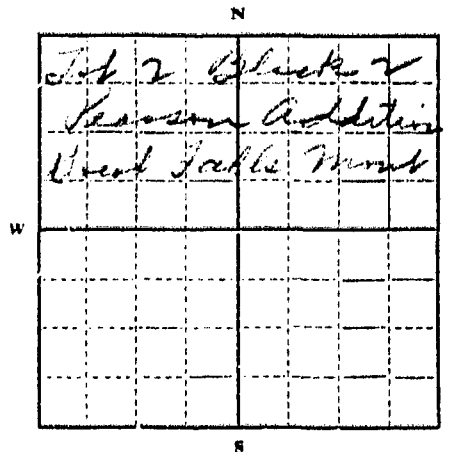 N
Lot 2 Block 2
Pearson Addition
Great Falls Mont
W
S